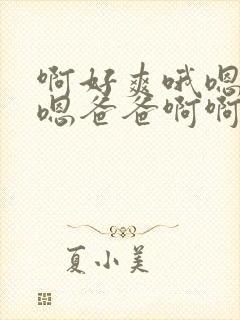 啊好爽哦嗯
嗯爸爸啊啊
夏小美